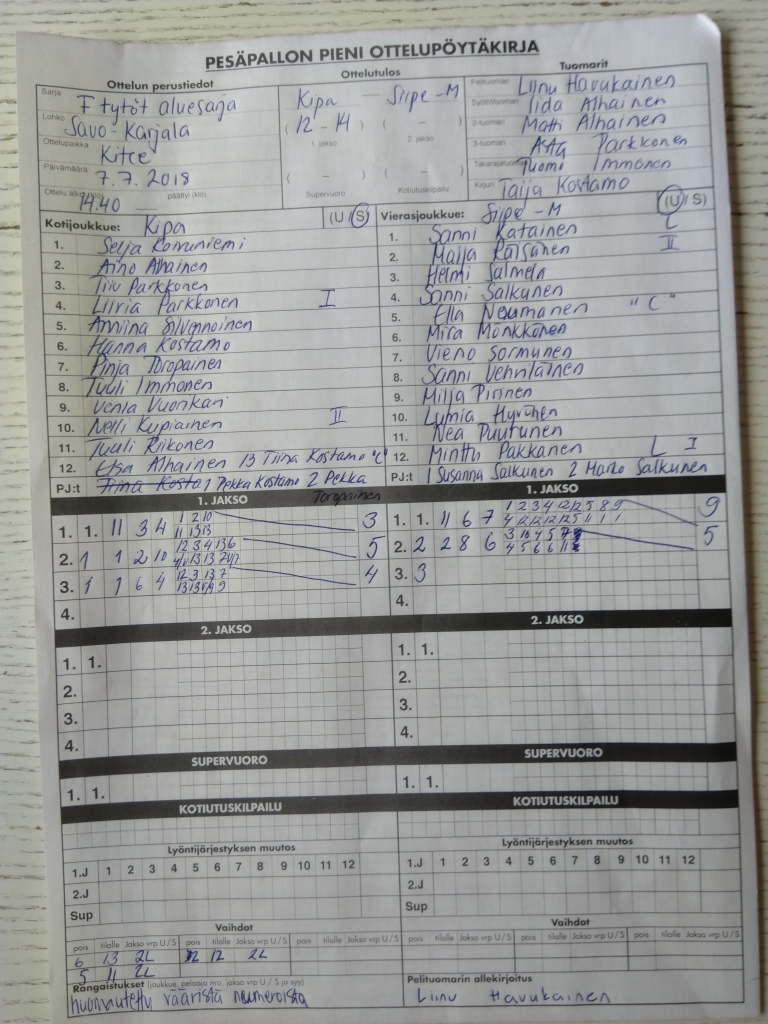 PESÄPALLON PIENI OTTELUPÖYTÄKIRJA
Ottelun perustiedot
Ottelutulos
Tuomarit
Sarja F tytöt aluesarja
Lohko Savo-Karjala
Ottelupaikka Kitee
Päivämäärä 7.7.2018
14.40 päättyi (klo)
Kipa – Siipe-M
( 12 - 14 ) ( – )
1. jakso 2. jakso
( – ) –
Supervuoro Kotiutuskilpailu
Pelituomari Liinu Havukainen
Syöttötuomari Iida Alhainen
2-tuomari Matti Alhainen
3-tuomari Asta Parkkonen
Takarajatuomari Tuomo Immonen
Kirjuri Taija Kostamo
Kotijoukkue: Kipa (U / S)
1. Selja Koivuniemi
2. Aino Alhainen
3. Iiu Parkkonen
4. Liivia Parkkonen I
5. Anniina Silvennoinen
6. Hanna Kostamo
7. Pinja Toropainen
8. Tuuli Immonen
9. Venla Vuorikari
10. Nelli Kupiainen II
11. Tuuli Riikonen
12. Elsa Alhainen 13 Tiina Kostamo "C"
PJ:t 1 Pekka Kostamo 2 Pekka Toropainen
Vierasjoukkue: Siipe-M (U / S)
1. Sanni Katainen L
2. Maija Räisänen II
3. Helmi Salmela
4. Sanni Salkunen
5. Ella Neumanen "C"
6. Mira Mönkkönen
7. Vieno Sormunen
8. Sanni Vehviläinen
9. Milja Pirinen
10. Lumia Hyvönen
11. Nea Puutunen
12. Minttu Pakkanen L I
PJ:t 1 Susanna Salkunen 2 Harro Salkunen
1. JAKSO
1. 1. 11 3 4 1 2 10 3
11 13 13
2. 1 1 2 10 12 3 4 13 6 5
3. 1 1 6 4 12 3 13 7 4
4.
1. JAKSO
1. 1. 11 6 7 1 2 3 4 12 12 5 8 9 9
4 12 12 12 12 5 11 1 1
2. 2 2 8 6 3 10 4 5 5
4 5 6 6 11
3. 3
4.
2. JAKSO
1. 1.
2.
3.
4.
2. JAKSO
1. 1.
2.
3.
4.
SUPERVUORO
1. 1.
SUPERVUORO
1. 1.
KOTIUTUSKILPAILU
KOTIUTUSKILPAILU
Lyöntijärjestyksen muutos
1.J 1 2 3 4 5 6 7 8 9 10 11 12
2.J
Sup
Lyöntijärjestyksen muutos
1.J 1 2 3 4 5 6 7 8 9 10 11 12
2.J
Sup
Vaihdot
pois tilalle Jakso vrp U / S pois tilalle Jakso vrp U / S pois tilalle Jakso vrp U / S
6 13 2L 12 12 2L
5 11 2L
Vaihdot
pois tilalle Jakso vrp U / S pois tilalle Jakso vrp U / S pois tilalle Jakso vrp U / S
Rangaistukset (joukkue, pelaaja nro, jakso vrp U / S ja syy)
huomautettu vääristä numeroista
Pelituomarin allekirjoitus
Liinu Havukainen